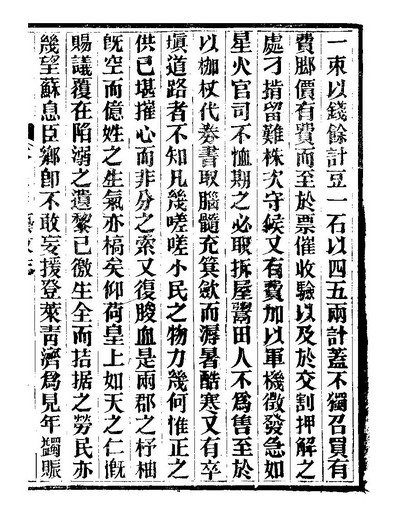 一束以錢餘計豆一石以四五兩計蓋不獨召買有
費脚價有費而至於票催收驗以及於交割押解之
處刁揹留難株次守候又有費加以軍機徵發急如
星火官司不恤期之必取拆屋鬻田人不爲售至於
以枷杖代劵書取腦髓充箕斂而溽暑酷寒又有卒
塡道路者不知凡幾嗟嗟小民之物力幾何惟正之
供已堪摧心而非分之索又復腹血是兩郡之杼柚
旣空而億姓之生氣亦槁矣仰荷皇上如天之仁旣
賜議覆在陷溺之遺黎已徼生全而拮据之勞民亦
幾望蘇息臣鄉卽不敢妄援登萊靑濟爲見年蠲賑